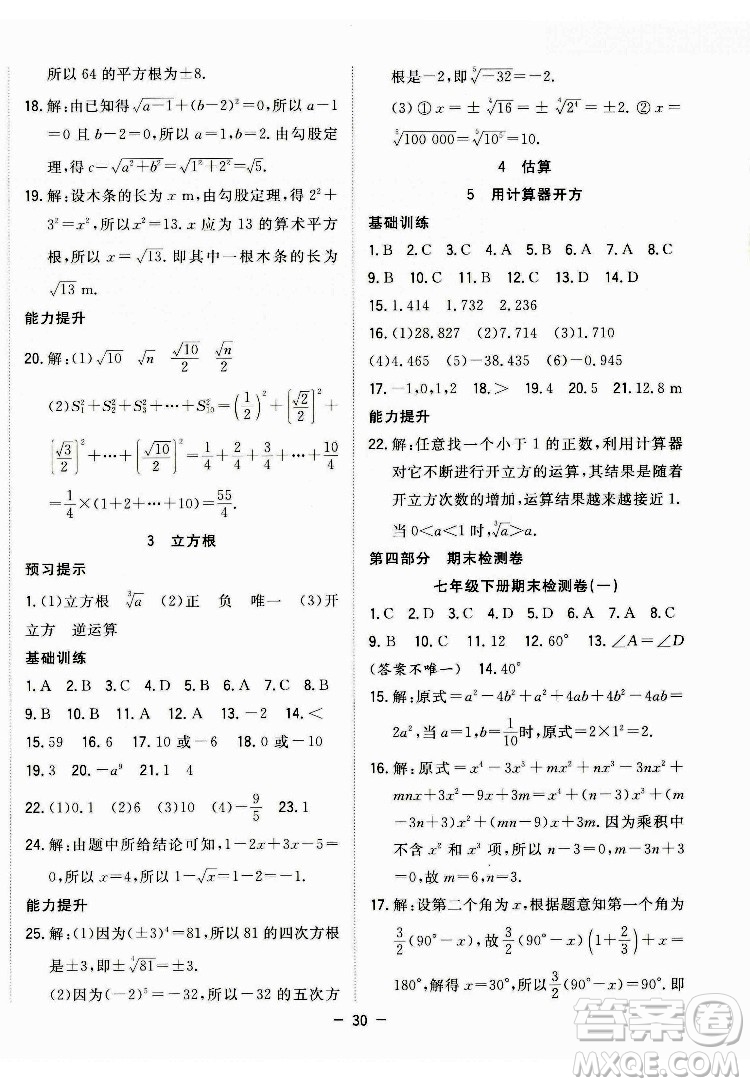 所以 64 的平方根为±8.
18. 解:由已知得√(a-1)+(b-2)²=0,所以 a-1
=0 且 b-2=0,所以 a=1,b=2. 由勾股定
理,得 c=√(a²+b²)=√(1²+2²)=√5.
19. 解:设木条的长为 x m,由勾股定理,得 2²+
3²=x²,所以 x²=13. x 应为 13 的算术平方
根,所以 x=√13,即其中一根木条的长为
√13 m.
能力提升
20. 解:(1)√10 √n √10/2 √n/2
(2)S₁²+S₂²+S₃²+…+S₁₀²=(1/2)²+[√2/2]²+
[√3/2]²+…+[√10/2]²=1/4+2/4+3/4+…+10/4
=1/4×(1+2+…+10)=55/4.
3 立方根
预习提示
1. (1)立方根 ∛a (2)正 负 唯一 (3)开
立方 逆运算
基础训练
1. A 2. B 3. C 4. D 5. B 6. C 7. C 8. D
9. B 10. B 11. A 12. A 13. B 14. <
15. 59 16. 6 17. 10 或-10 18. 0 或-6
19. 3 20. -a⁹ 21. 1 4
22. (1)0.1 (2)6 (3)-4 (4)-9/5 23. 1
24. 解:由题中所给结论可知,1-2x+3x-5=
0,所以 x=4,所以 1-√x=1-2=-1.
能力提升
25. 解:(1)因为(±3)⁴=81,所以 81 的四次方根
是±3,即±∜81=±3.
(2)因为(-2)⁵=-32,所以-32 的五次方
根是-2,即⁵√-32=-2.
(3)① x=±∜16=±∜2⁴=±2. ② x=
⁵√100 000=10.
4 估算
5 用计算器开方
基础训练
1. B 2. C 3. C 4. B 5. C 6. A 7. A 8. C
9. B 10. B 11. C 12. D 13. B 14. C
15. 1.414 1.732 2.236
16. (1)28.827 (2)7.914 (3)0.762
(4)4.465 (5)-2.410 (6)-0.945
17. -1,0,1,2 18. > 19. 4 20. 5 21. 12.8 m
能力提升
22. 解:任意找一个小于 1 的正数,利用计算器
对它不断进行开立方的运算,其结果是随着
开立方次数的增加,运算结果越来越接近 1.
当 0<a<1 时,∛a>a.
第四部分 期末检测卷
七年级下册期末检测卷(一)
1. C 2. D 3. D 4. B 5. B 6. C 7. A 8. C
9. B 10. C 11. 12 12. 60° 13. ∠A=∠D
(答案不唯一) 14. 40°
15. 解:原式=a²-4b²+a²+4ab+4b²-4ab=
2a²,当 a=1/10时,原式=2×1²=2.
16. 解:原式=x⁴-3x³+nx²+mx³-3mx²+
mnx+3x²-9x+3n=x⁴+(m-3)x³+(n-
3m+3)x²+(mn-9)x+3n. 因为乘积中
不含 x² 和 x³ 项,所以 m-3=0,n-3m+3
=0,故 m=3,n=6.
17. 解:设第二个角为 x,根据题意知第一个角为
3/2(90°-x),故 3/2(90°-x)(1+1/3)+x+
(90°-x)=180°,解得 x=30°,所以3/2(90°-x)=90°. 即
— 30 —
答案卷
MXQE.COM